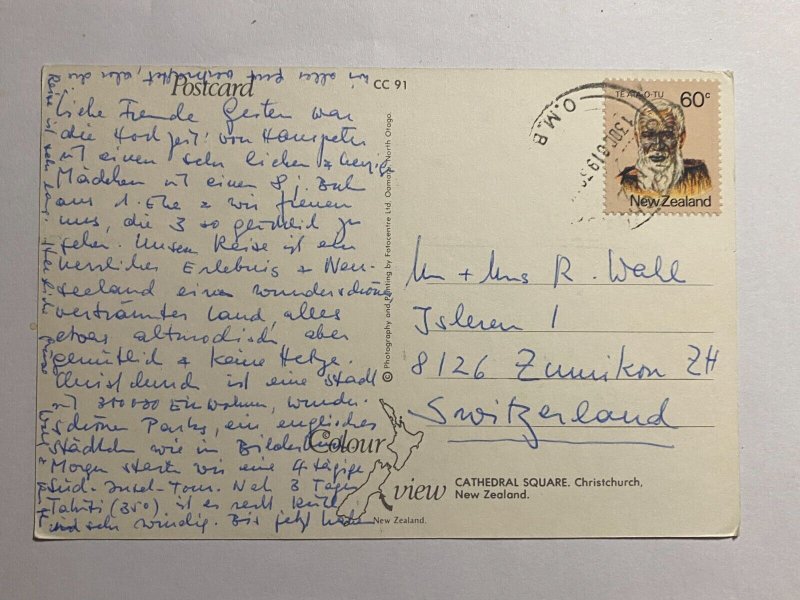 Postcard
CC 91
Liebe Freunde Gestern war
die Hochzeit von Hanspeter
mit einem sehr lieben &
Mädchen mit einem 8 j. Bub
aus 1. Ehe & wir freuen
uns, die 3 so zu
sehen. Unsere Reise ist ein
herrliches Erlebnis & Neu-
seeland einen wunderschöne
verträumtes Land, alles
etwas altmodisch aber
gemütlich & keine Hetze.
Christchurch ist eine Stadt
mit 300000 Einwohnern, wunder-
schöne Parks, ein englisches
Städtchen wie im Bilderbuch
Morgen starten wir eine 4 tägige
Süd-Insel-Tour. Nach 3 Tagen
Tahiti (35°) ist es recht kühl
und sehr windig. Bis jetzt haben
wir alles gut aber die
Reise ist sehr lang. Herzliche Grüsse
© Photography and Printing by Fotocentre Ltd. Oamaru, North Otago.
TE ATA-O-TU
60c
New Zealand
O.M.B
Mr + Mrs R. Wall
Isleren 1
8126 Zumikon ZH
Switzerland
Colour
view
New Zealand.
CATHEDRAL SQUARE. Christchurch,
New Zealand.